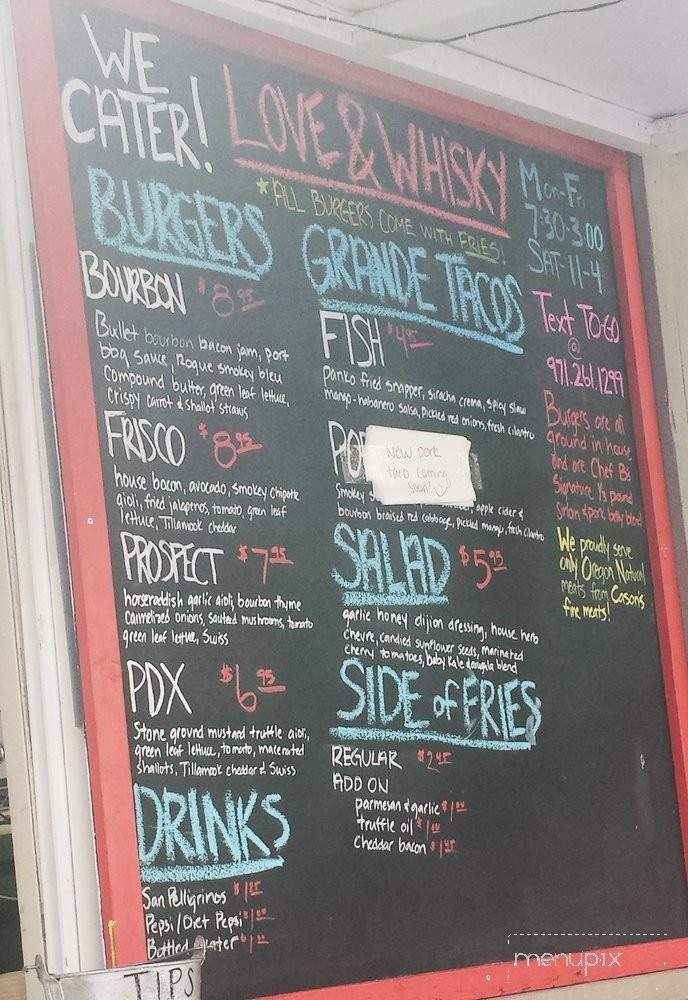 WE
CATER!
LOVE & WHISKY
★ALL BURGERS COME WITH FRIES!
BURGERS
BOURBON $8.95
Bullet bourbon bacon jam, port
bbq sauce, Rogue smokey bleu
compound butter, green leaf lettuce,
crispy carrot & shallot straws
FRISCO $8.95
house bacon, avocado, smokey chipotle
aioli, fried jalapenos, tomato, green leaf
lettuce, Tillamook cheddar
PROSPECT $7.95
horseraddish garlic aioli, bourbon thyme
carmelized onions, sauteed mushrooms, tomato
green leaf lettuce, Swiss
PDX $6.95
Stone ground mustard truffle aioli,
green leaf lettuce, tomato, macerated
shallots, Tillamook cheddar & Swiss
DRINKS
San Pelligrinos
Pepsi/Diet Pepsi
Bottled Water
GRANDE TACOS
FISH $4.95
Panko fried snapper, siracha crema, spicy slaw
mango-habanero salsa, pickled red onions, fresh cilantro
New pork
taco coming
soon!
Smokey apple cider &
bourbon braised red cabbage, pickled mango, fresh cilantro
SALAD $5.95
garlic honey dijion dressing, house herb
chevre, candied sunflower seeds, marinated
cherry tomatoes, baby kale arugula blend
SIDE of FRIES
REGULAR $2.95
ADD ON
parmesan & garlic
truffle oil
cheddar bacon
Mon-Fri
7:30-3:00
SAT-11-4
Text TO-GO
@
971.261.1299
Burgers are all
ground in house
and are Chef B's
Signature ⅓ pound
Sirloin & pork belly blend
We proudly serve
only Oregon Natural
meats from Carson's
fine meats!
TIPS
menupix